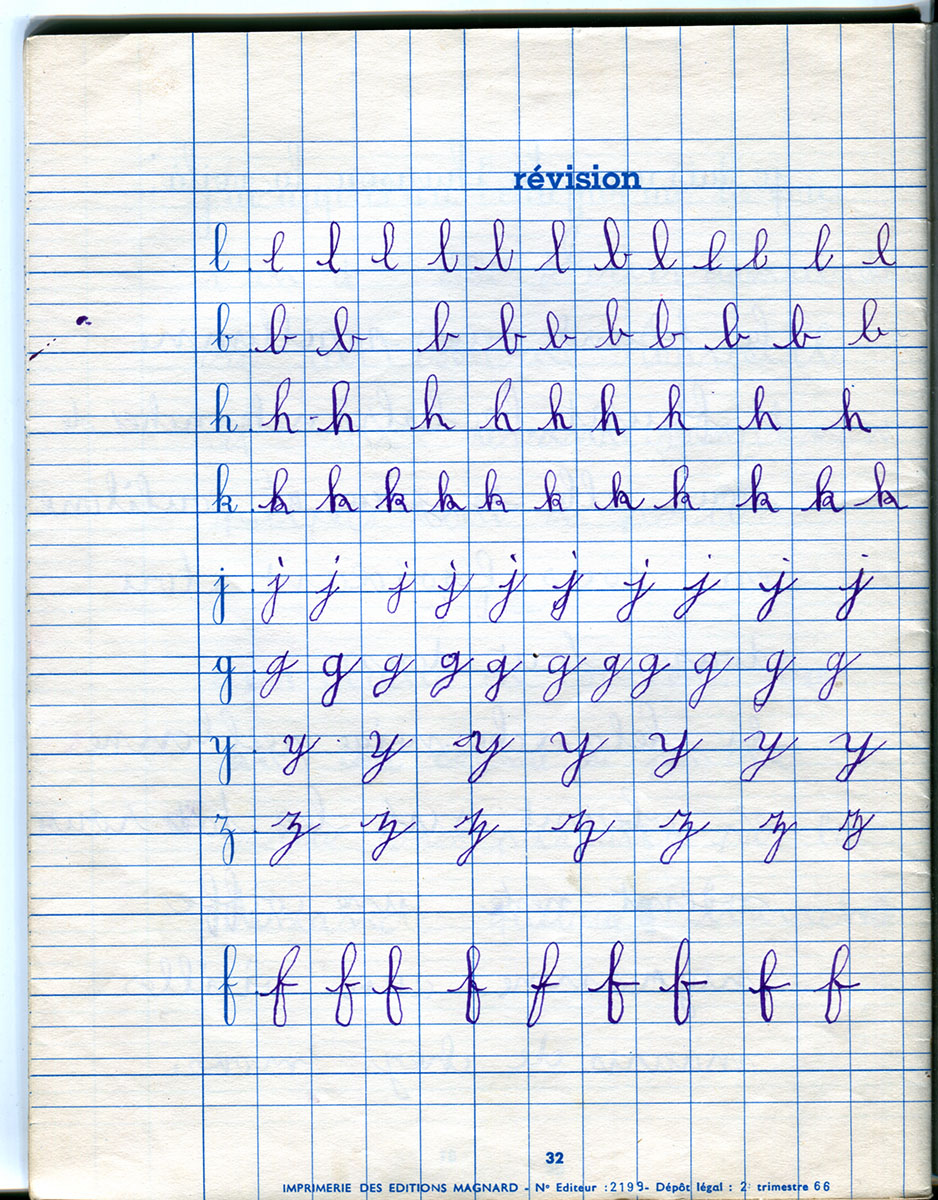 révision
l l l l l l l b l l l l l
b b b b b b b b b b b
h h h h h h h h h h
k k k k k k k k k k k k
j j j j j j j j j j j
g g g g g g g g g g g g
y y y y y y y y
z z z z z z z z
f f f f f f f f f f
32
IMPRIMERIE DES EDITIONS MAGNARD - N° Editeur : 2199 - Dépôt légal : 2e trimestre 66